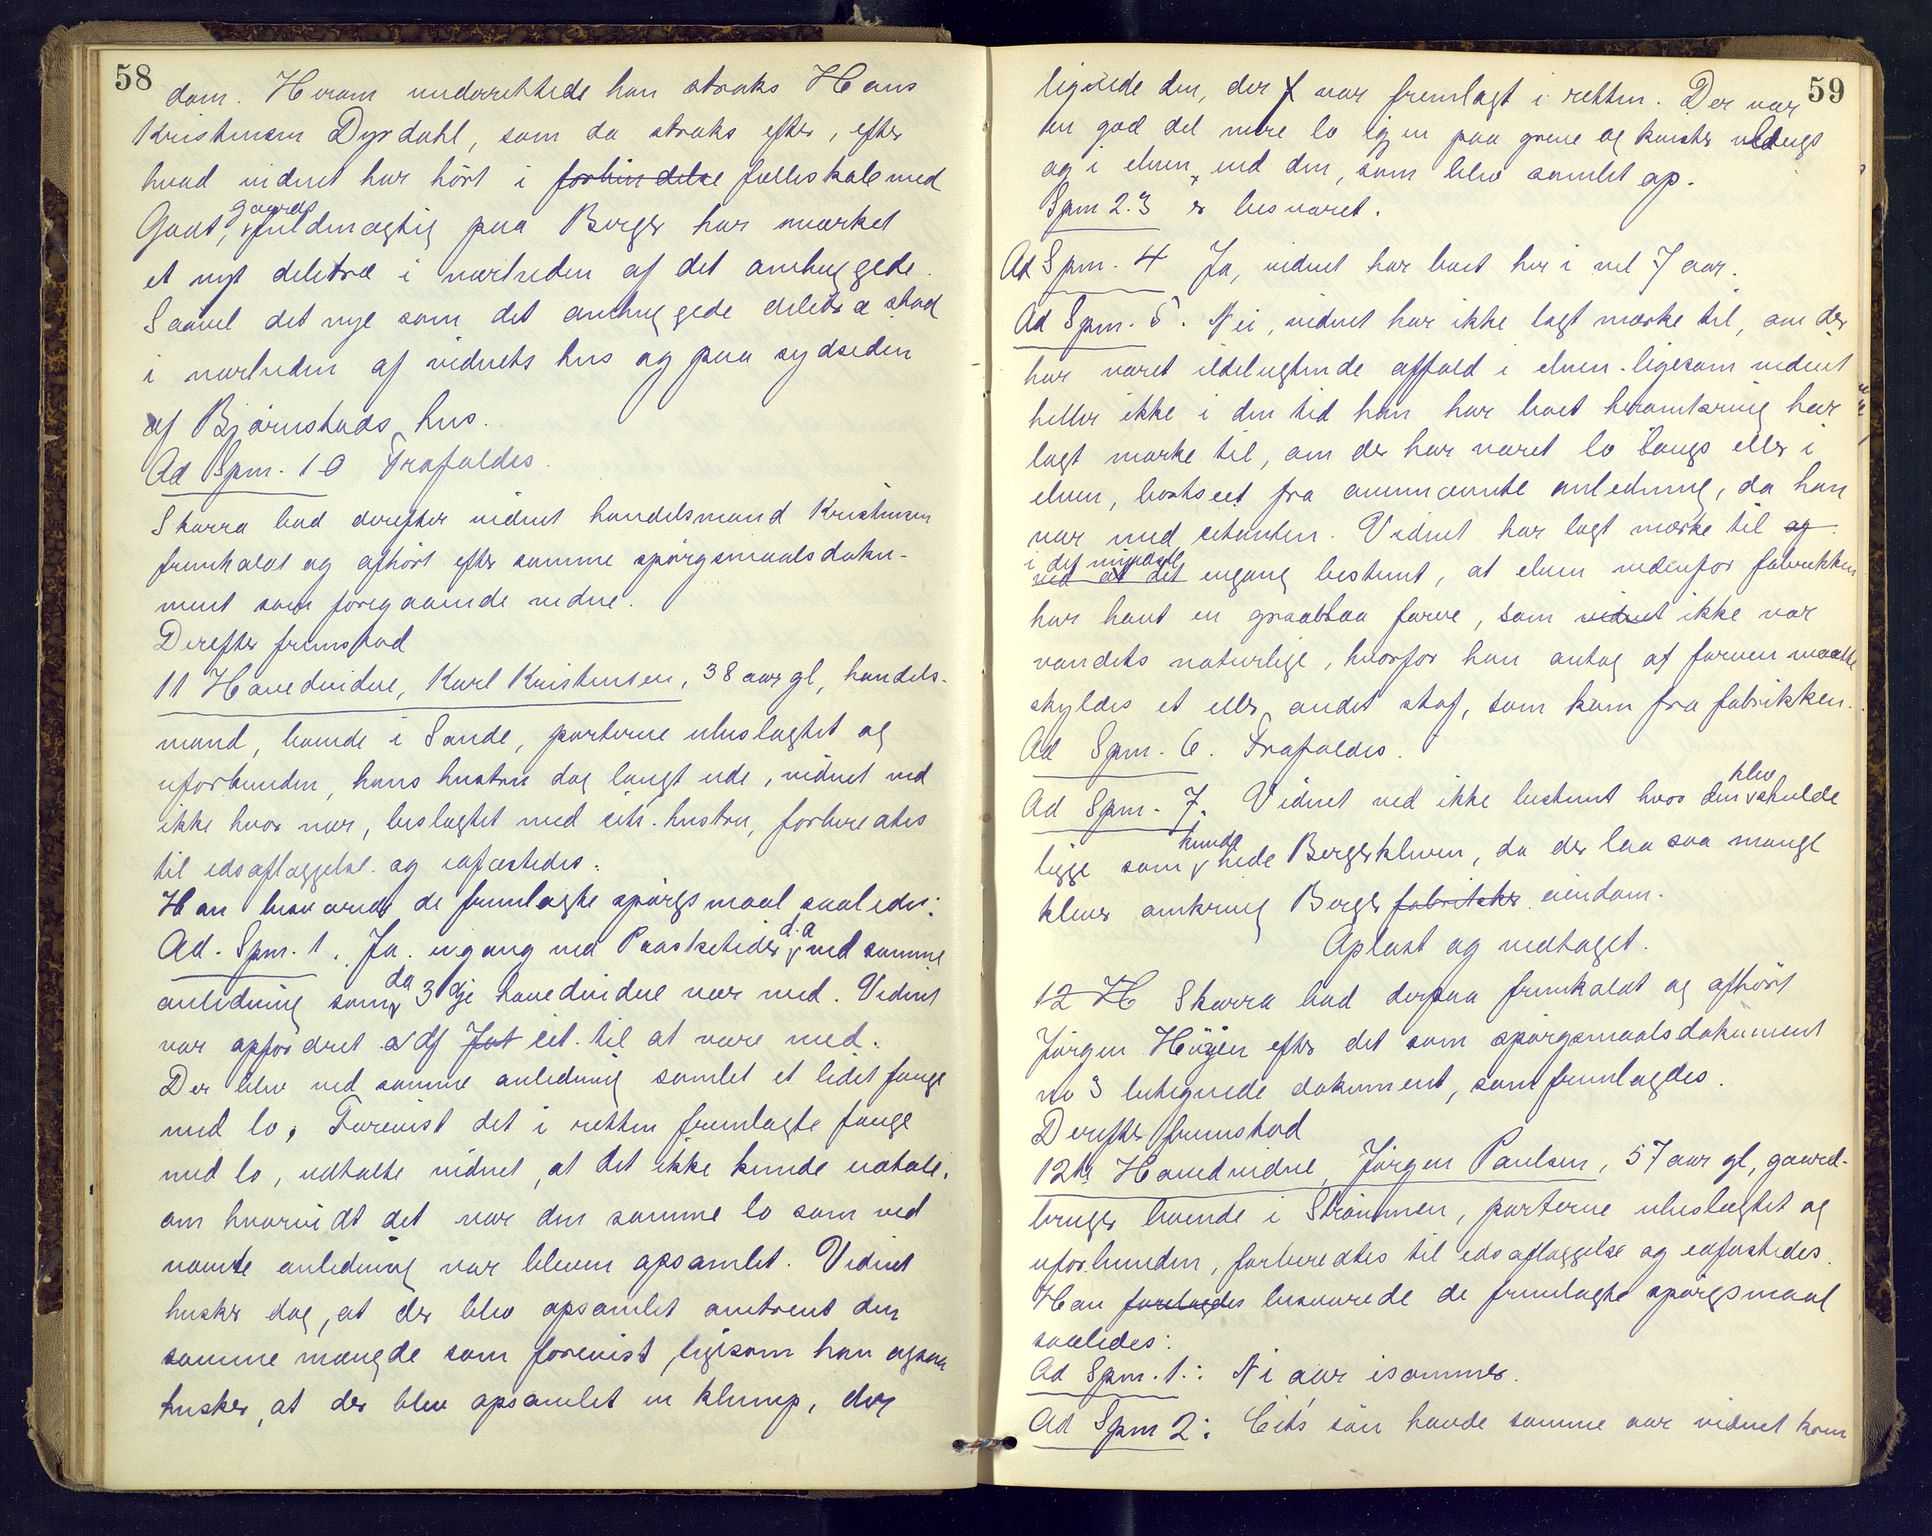 58
dom. Herom underrettede han straks Hans
Kristensen Dyrdahl, som da straks efter, efter
hvad vidnet har hørt i forbindelse fælleskab med
Gaut, gaards fuldmægtig paa Berger har mærket
et nyt deletræ i nærheden af det omhuggede.
Saavel det nye som det omhuggede deletræ stod
i nærheden af vidnets hus og paa sydsiden
af Bjørnstads hus.
Ad Spm. 10 Frafaldes.
Skarra bad derefter vidnet handelsmand Kristensen
fremkaldt og afhørt efter samme spørgsmaalsdoku-
ment som foregaaende vidne.
Derefter fremstod
11 Hovedvidne, Karl Kristensen, 38 aar gl, handels-
mand, boende i Sande, parterne ubeslægtet og
uforbunden, hans hustru dog langt ude, vidnet ved
ikke hvor nær, beslægtet med cit. hustru, forberedtes
til edsaflæggelse og edfæstedes.
Han besvarede de fremlagte spørgsmaal saaledes:
Ad. Spm. 1. Ja. engang ved Paasketider d.a ved samme
anledning som da 3dje hovedvidne var med. Vidnet
var opfordret af Jat cit. til at være med.
Der blev ved samme anledning samlet et lidet fange
med lo. Forevist det i retten fremlagte fange
med lo, udtalte vidnet, at det ikke kunde udtale,
om hvorvidt det var den samme lo som ved
nævnte anledning var bleven opsamlet. Vidnet
husker dog, at der blev opsamlet omtrent den
samme mængde som forevist, ligesom han ogsaa
husker, at der blev opsamlet en klump, der
59
lignede den, der var fremlagt i retten. Der var
en god del mere lo igjen paa grene og kvister nedigs
og i elven, end den, som blev samlet op.
Spm 2.3 er besvaret.
Ad Spm. 4 Ja, vidnet har boet her i vel 7 aar.
Ad Spm. 5. Nei, vidnet har ikke lagt mærke til, om der
har været ildelugtende affald i elven. ligesom vidnet
heller ikke i den tid han har boet heromkring har
lagt mærke til, om der har været lo langs eller i
elven, bortseet fra ovennævnte anledning, da han
var med citanten. Vidnet har lagt mærke til og
i det mindste
ved at det engang bestemt, at elven nedenfor fabrikken
har havt en graablaa farve, som vidnet ikke var
vandets naturlige, hvorfor han antog at farven maatte
skyldes et eller andet stof, som kom fra fabrikken.
Ad Spm. 6. Frafaldes.
Ad Spm. 7. Vidnet ved ikke bestemt hvor den blev skulde
ligge som kunde hede Bergerkleven, da der laa saa mange
klever omkring Berger fabrikker eiendom.
Oplæst og vedtaget.
12 H Skarra bad derpaa fremkaldt og afhørt
Jørgen Høyen efter det som spørgsmaalsdokument
no 3 betegnede dokument, som fremlagdes.
Derefter fremstod
12te Hovedvidne, Jørgen Paulsen, 57 aar gl, gaard-
bruger boende i Strømmen, parterne ubeslægtet og
uforbunden, forberedtes til edsaflæggelse og edfæstedes.
Han forelagdes besvarede de fremlagte spørgsmaal
saaledes:
Ad Spm. 1.: Ni aar isommer.
Ad Spm 2: Cits søn havde samme aar vidnet kom